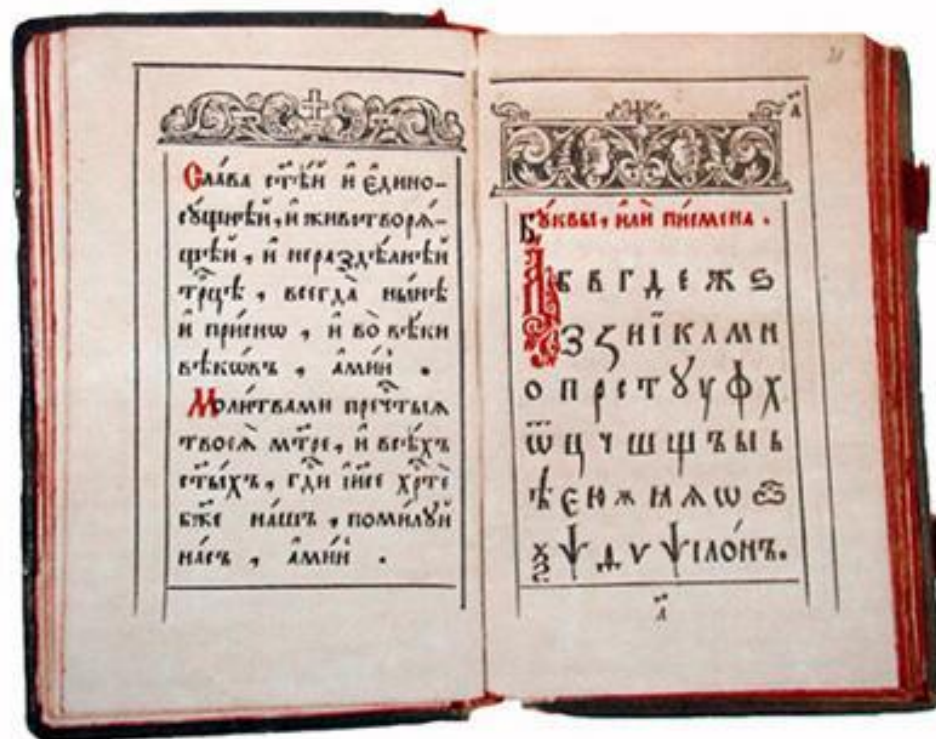 Сла́ва ст҃ѣ́й и҆ є҆ди́но-
сꙋ́щнѣй, и҆ животворѧ́-
щѣй, и҆ нераздѣ́лнѣй
трⷪ҇цѣ, всегда̀ ны́нѣ
и҆ при́снѡ, и҆ во̀ вѣ́ки
вѣкѡ́въ, а҆ми́нь.
Моли́твами пречⷭ҇тыѧ
твоеѧ̀ мт҃ре, и҆ всѣ́хъ
ст҃ы́хъ, гдⷭ҇и і҆и҃се хрⷭ҇тѐ
бж҃е на́шъ, поми́лꙋй
на́съ, а҆ми́нь.
21
а҃
Бꙋ́квы, и҆лѝ пи́смена.
А б в г д е ж ѕ
З ꙁ и ї к л м н
о п р с т ꙋ у ф х
ѿ ц ч ш щ ъ ы ь
ѣ є ю ѫ ꙗ ѧ ѡ
ѯ ѱ ѵ ѱіло́нъ.
а҃